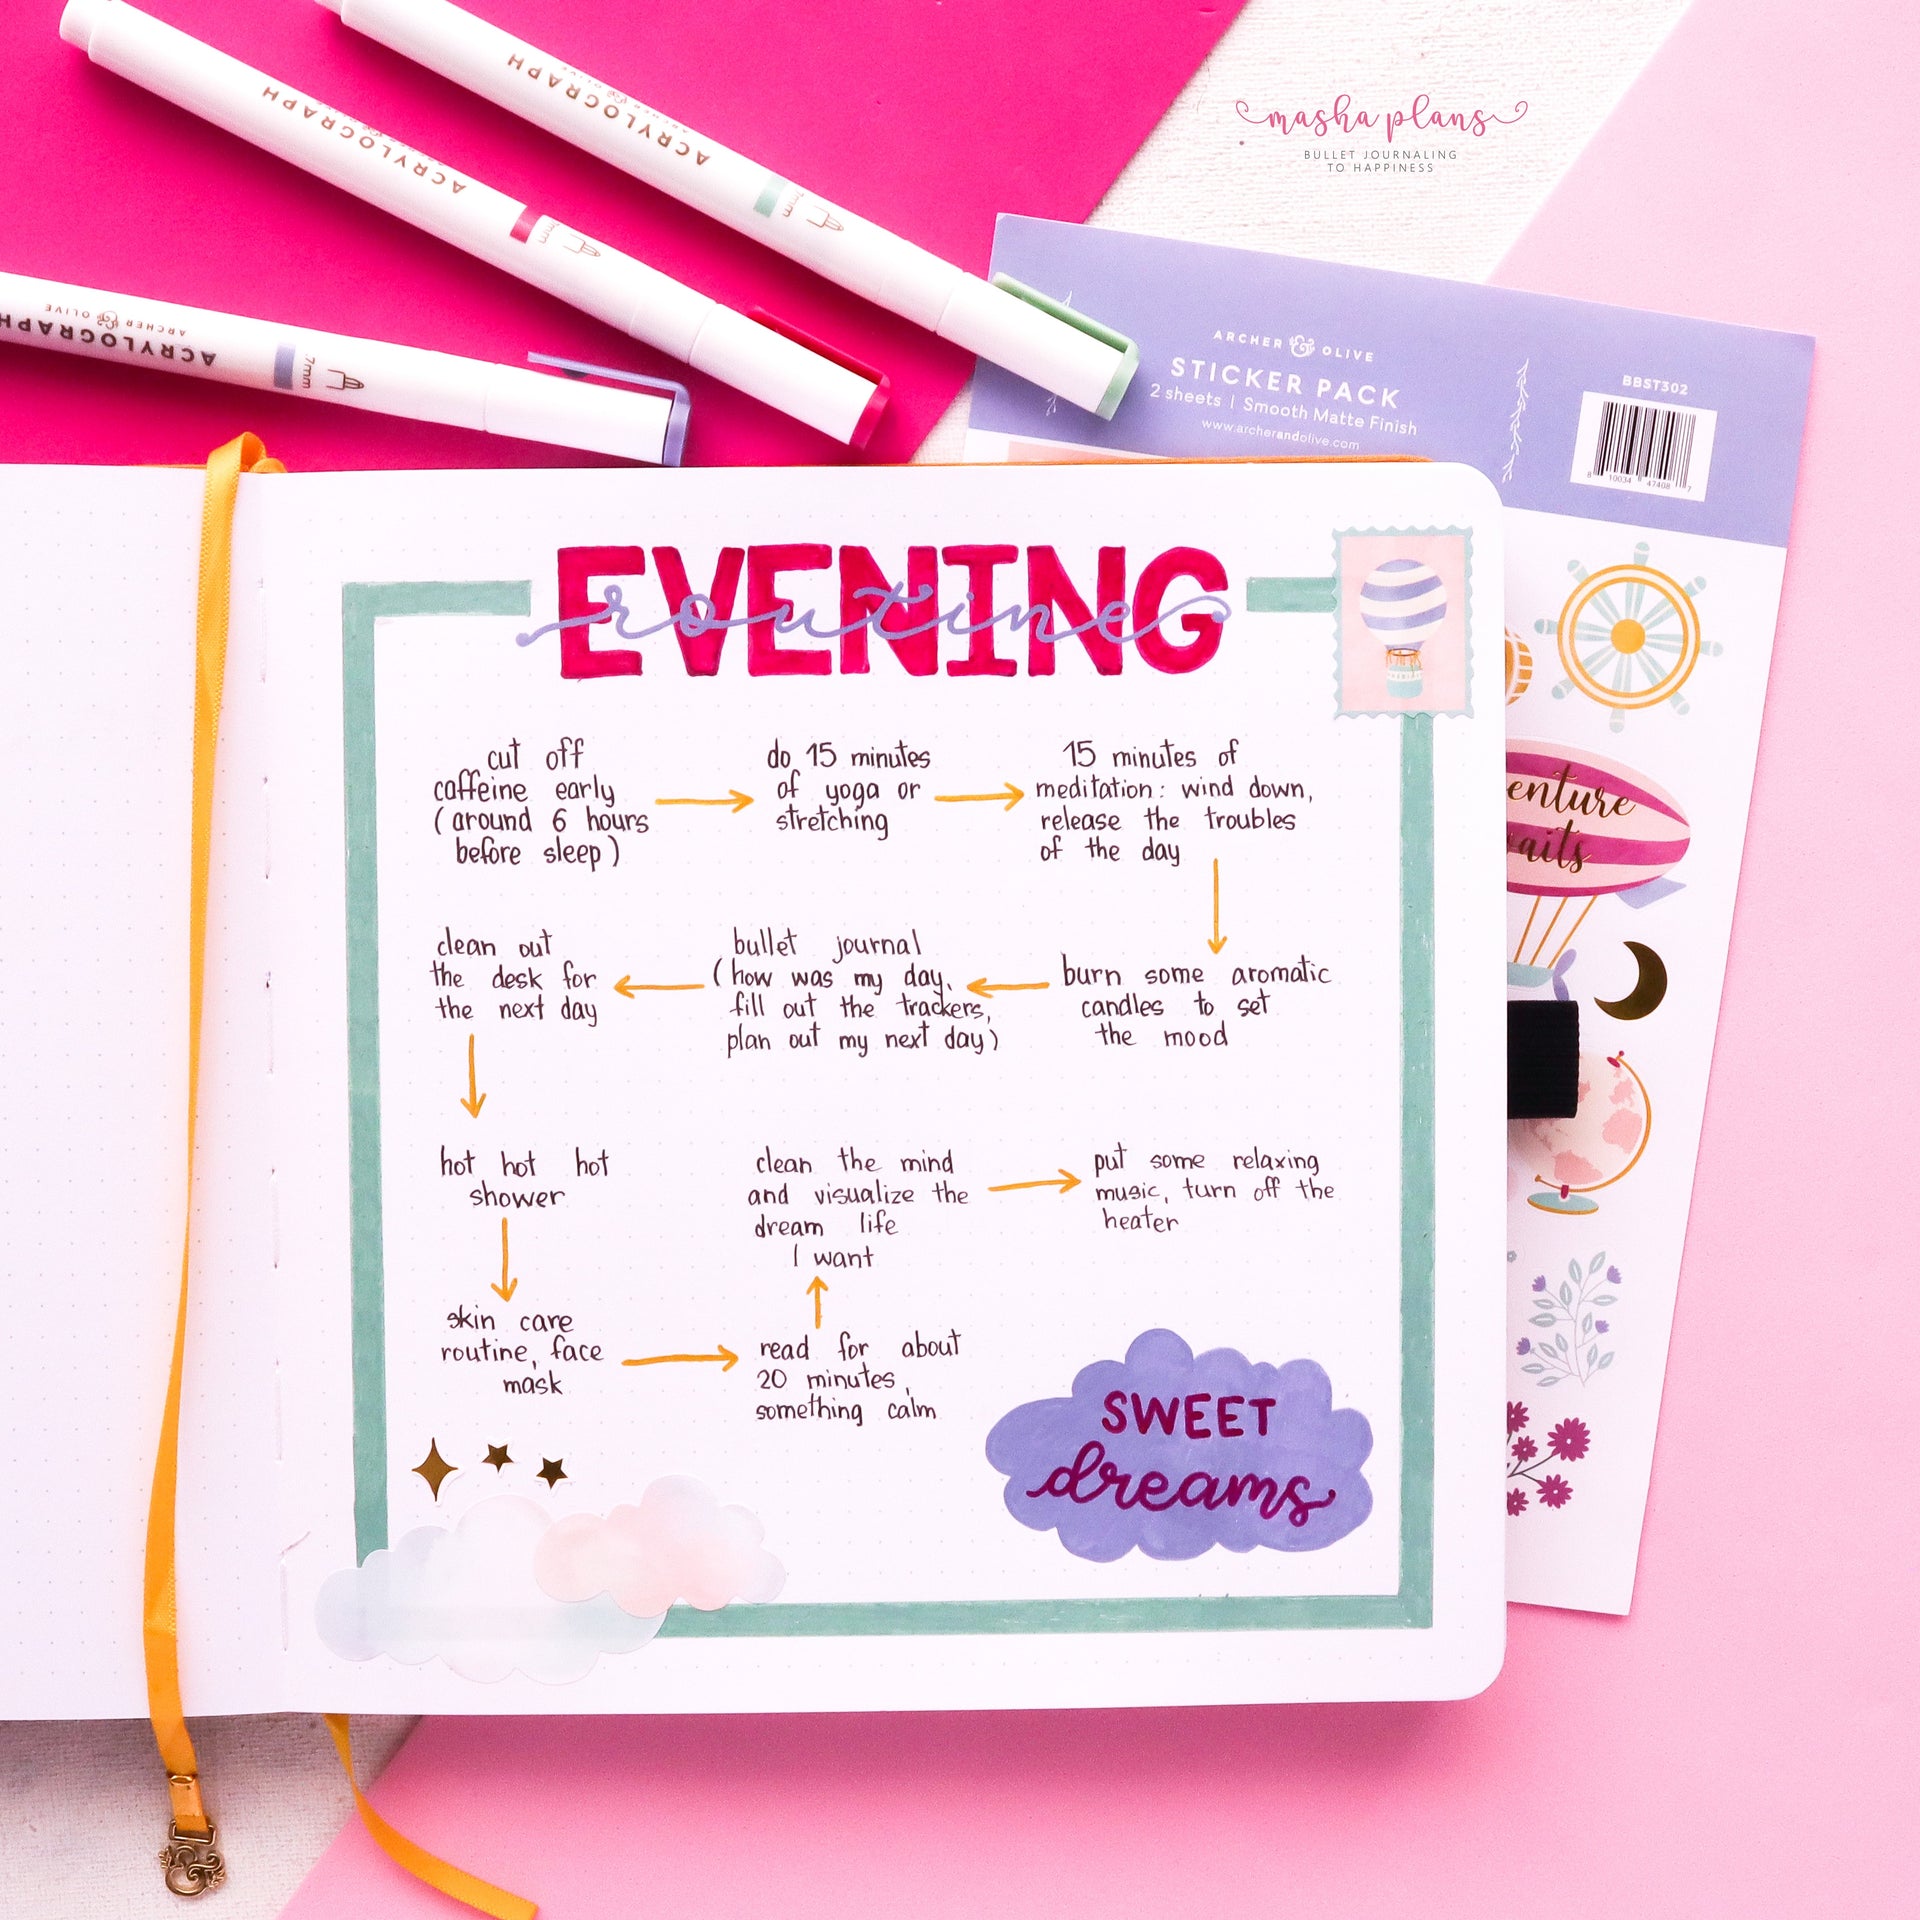 masha plans
BULLET JOURNALING
TO HAPPINESS
ACRYLOGRAPH
ARCHER & OLIVE
7mm
ACRYLOGRAPH
ACRYLOGRAPH
ARCHER & OLIVE
7mm
ARCHER & OLIVE
STICKER PACK
2 sheets | Smooth Matte Finish
www.archerandolive.com
BBST302
8 10034 47408 7
EVENING
routine
cut off
caffeine early
(around 6 hours
before sleep)
do 15 minutes
of yoga or
stretching
15 minutes of
meditation: wind down,
release the troubles
of the day
burn some aromatic
candles to set
the mood
bullet journal
(how was my day,
fill out the trackers,
plan out my next day)
clean out
the desk for
the next day
hot hot hot
shower
skin care
routine, face
mask
read for about
20 minutes,
something calm
clean the mind
and visualize the
dream life
I want
put some relaxing
music, turn off the
heater
SWEET
dreams
enture
aits